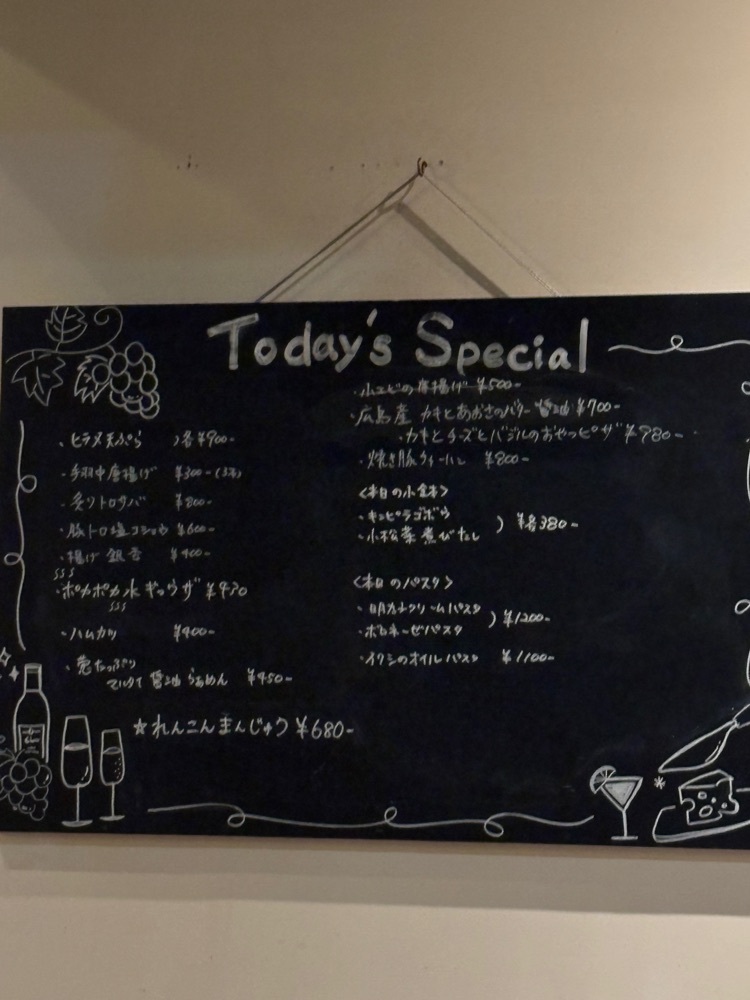 Today's Special
・ヒラメ天ぷら )各¥900-
・手羽中唐揚げ ¥300-(3本)
・炙りトロサバ ¥800-
・豚トロ塩コショウ ¥600-
・揚げ銀杏 ¥400-
・ポカポカ水ギョウザ ¥470
・ハムカツ ¥400-
・葱たっぷり
マルタイ醤油らぁめん ¥450-
☆れんこんまんじゅう ¥680-
・小エビの唐揚げ ¥500-
・広島産 カキとあおさのバター醤油 ¥700-
・カキとチーズとバジルのおやつピザ ¥780-
・焼き豚 ¥800-
<本日の小鉢>
・キンピラゴボウ
・小松菜煮びたし ) ¥各380-
<本日のパスタ>
・明太クリームパスタ
・ボロネーゼパスタ ) ¥1200-
・イワシのオイルパスタ ¥1100-